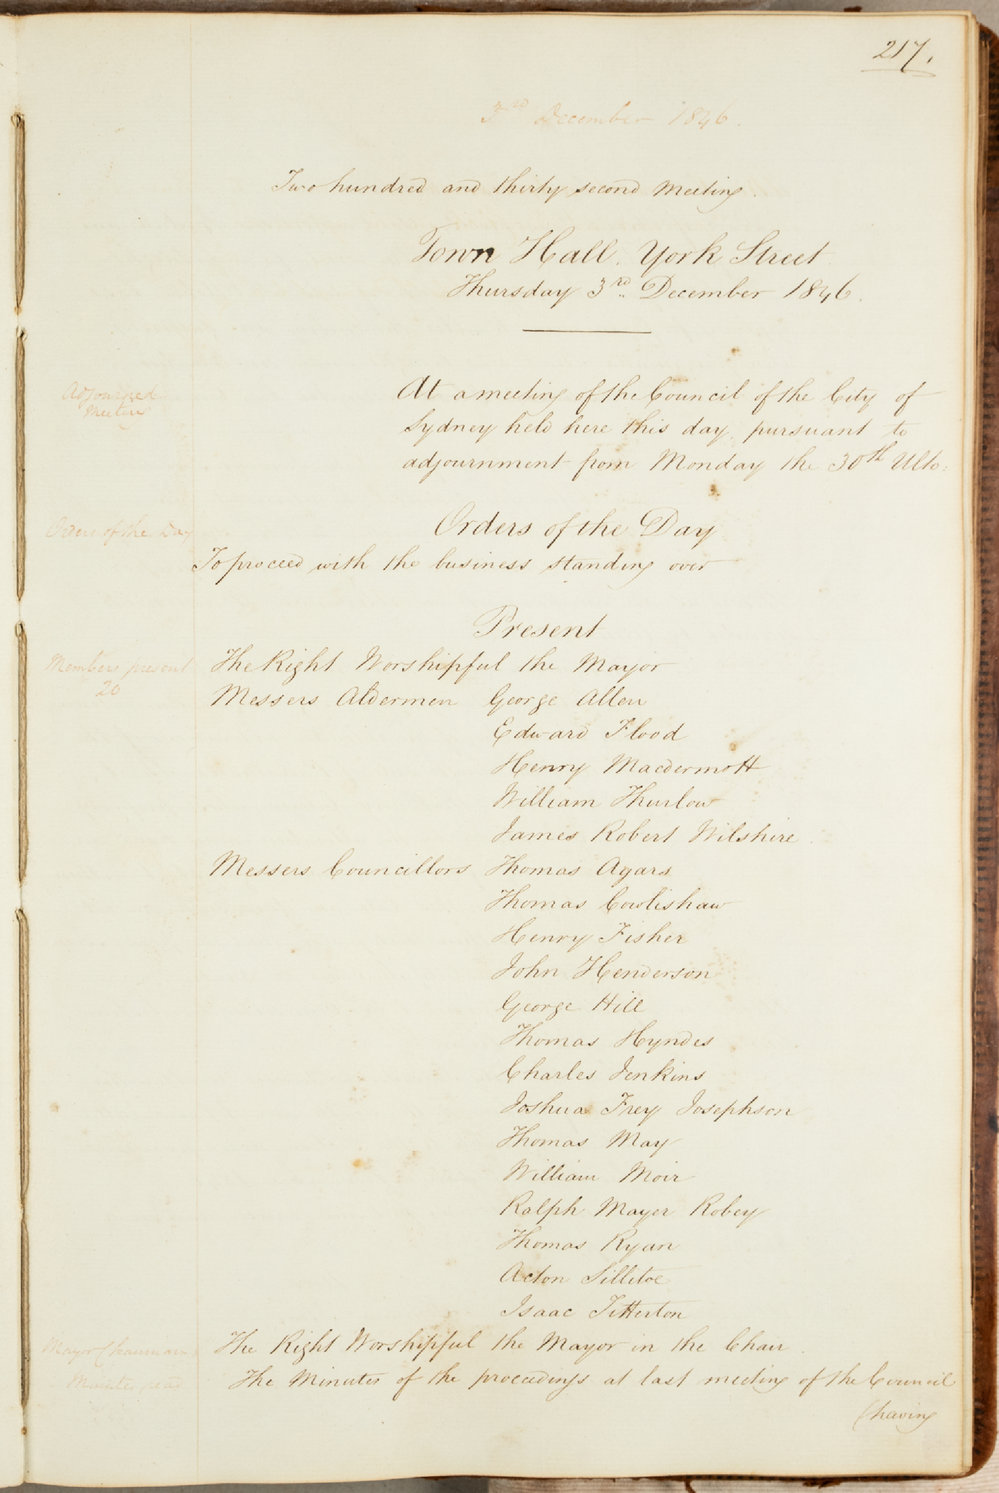 217.
3rd December 1846.
Two hundred and thirty second Meeting.
Town Hall. York Street.
Thursday 3rd. December 1846.
Adjourned
Meeting
At a meeting of the Council of the City of
Sydney held here this day, pursuant to
adjournment from Monday the 30th Ulto:
Orders of the Day
Orders of the Day
To proceed with the business standing over
Present
Members present
20
The Right Worshipful the Mayor
Messers Aldermen George Allen
Edward Flood
Henry Macdermott
William Thurlow
James Robert Wilshire.
Messers Councillors Thomas Agars
Thomas Cowlishaw
Henry Fisher
John Henderson
George Hill
Thomas Hyndes
Charles Jenkins
Joshua Frey Josephson
Thomas May
William Moir
Ralph Mayer Robey
Thomas Ryan
Acton Sillitoe
Isaac Titterton
Mayor Chairman
The Right Worshipful the Mayor in the Chair.
Minutes read
The Minutes of the proceedings at last meeting of the Council
(having